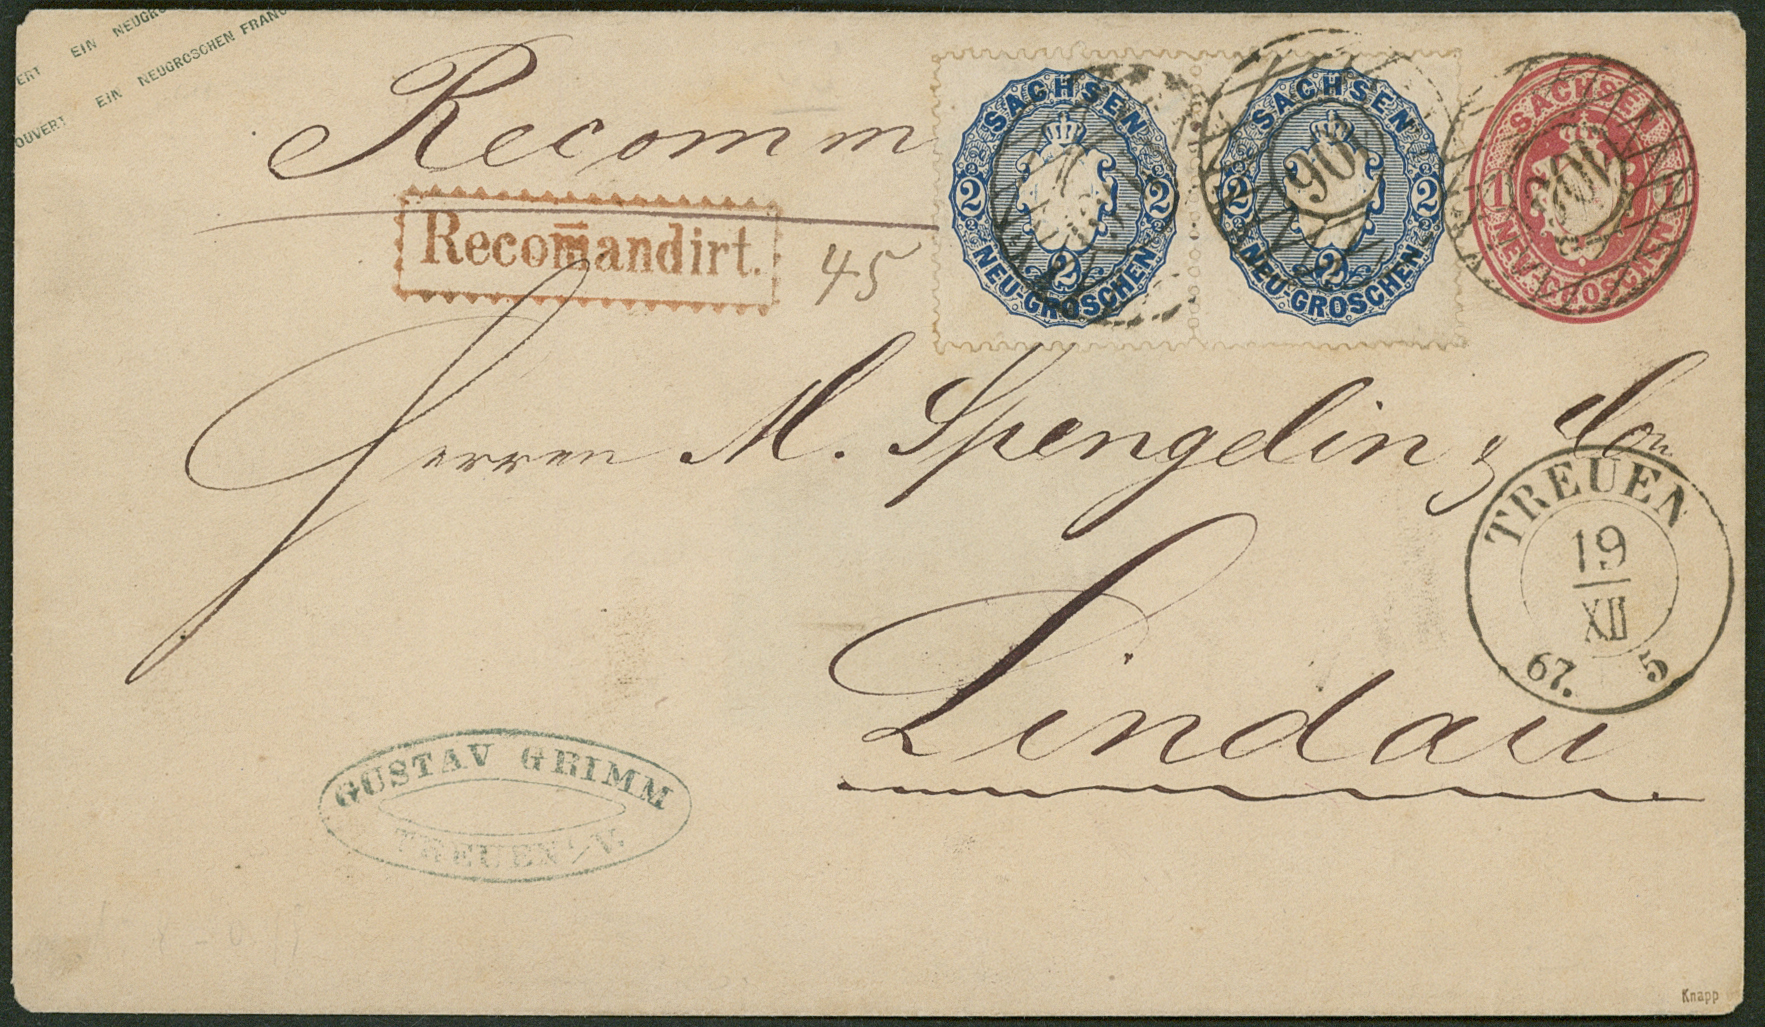 EIN NEUGRO
ERT EIN NEUGROSCHEN FRANC
OUVERT
Recomm
Recom̄andirt.
45
SACHSEN
2 2
2
NEU-GROSCHEN
SACHSEN
90
2 2
2
NEU-GROSCHEN
SACHSEN
1
NEU-GROSCHEN
Herren M. Spengelin &
Lindau
TREUEN
19
XII
67. 5
GUSTAV GRIMM
TREUEN i/V.
Knapp